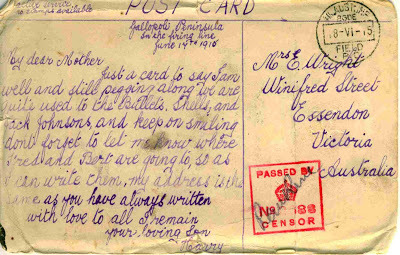 POST CARD
Gallopoli Peninsula
In the firing line
June 14th 1915
My dear Mother
Just a card to say I am
well and still pegging along for are
quite used to the Bullets, Shells, and
Jack Johnsons, and keep on smiling
dont forget to let me know where
Fred and Bert are going to, so as
I can write them, my address is the
same as you have always written
with love to all I remain
your loving Son
Harry
FIELD
Mrs E Wright
Winifred Street
Essendon
Victoria
Australia
PASSED BY
No 188
CENSOR